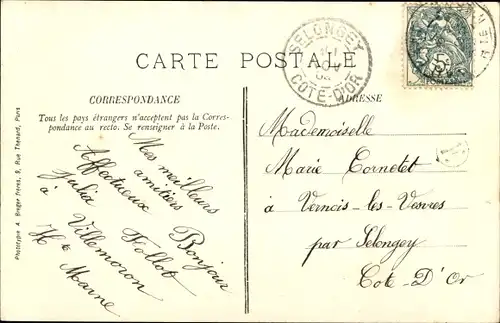 CARTE POSTALE
SELONGEY
COTE-D'OR
CORRESPONDANCE
Tous les pays étrangers n'acceptent pas la Corres-
pondance au recto. Se renseigner à la Poste.
ADRESSE
Mes meilleurs
amitiés Bonjour
Affectueux
Julia Follot
à Villemoron
Hte Marne
Mademoiselle
Marie Cornetet
à Vernois-les-Vesvres
par Selongey
Cote-D'Or
Phototypie A. Breger frères, 9, Rue Thénard, Paris